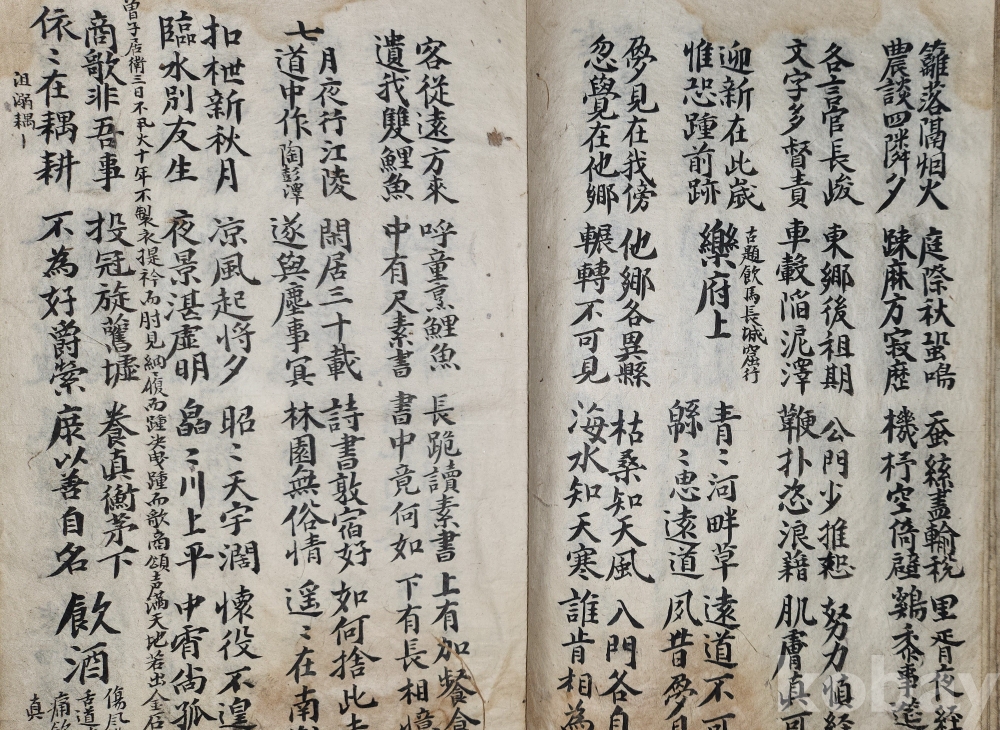 籬落隔烟火 庭際秋蛩鳴 蚕絲盡輸稅 里胥夜経
農談四隣夕 踈麻方寂歴 機杼空倚壁 鷄黍事筵
各言官長峻 東鄉後祖期 公門少推恕 努力慎経
文字多督責 車轂陷泥澤 鞭扑恣浪籍 肌膚真可
迎新在此歲
惟恐踵前跡
古題飲馬長城窟行
樂府上
青〻河畔草 遠道不可
綿〻思遠道 夙昔夢見
夢見在我傍 他鄉各異縣 枯桑知天風 入門各自
忽覺在他鄉 輾轉不可見 海水知天寒 誰肯相為
客從遠方來 呼童烹鯉魚 長跪讀素書 上有加飡食
遺我雙鯉魚 中有尺素書 書中竟何如 下有長相憶
七月夜行江陵
道中作 陶彭澤
閑居三十載 詩書敦宿好 如何捨此去
遂與塵事冥 林園無俗情 遥〻在南
扣枻新秋月 凉風起將夕 昭〻天宇濶 懷役不遑
臨水別友生 夜景湛虛明 皛〻川上平 中宵尚孤
曽子居衛三日不火十年不製衣提衿而肘見納履而踵决曵踵而歌商頌声滿天地若出金石
商歌非吾事 投冠旋舊墟 養真衡茅下
依〻在耦耕 不為好爵縈 庶以善自名
沮溺耦丨
飲酒